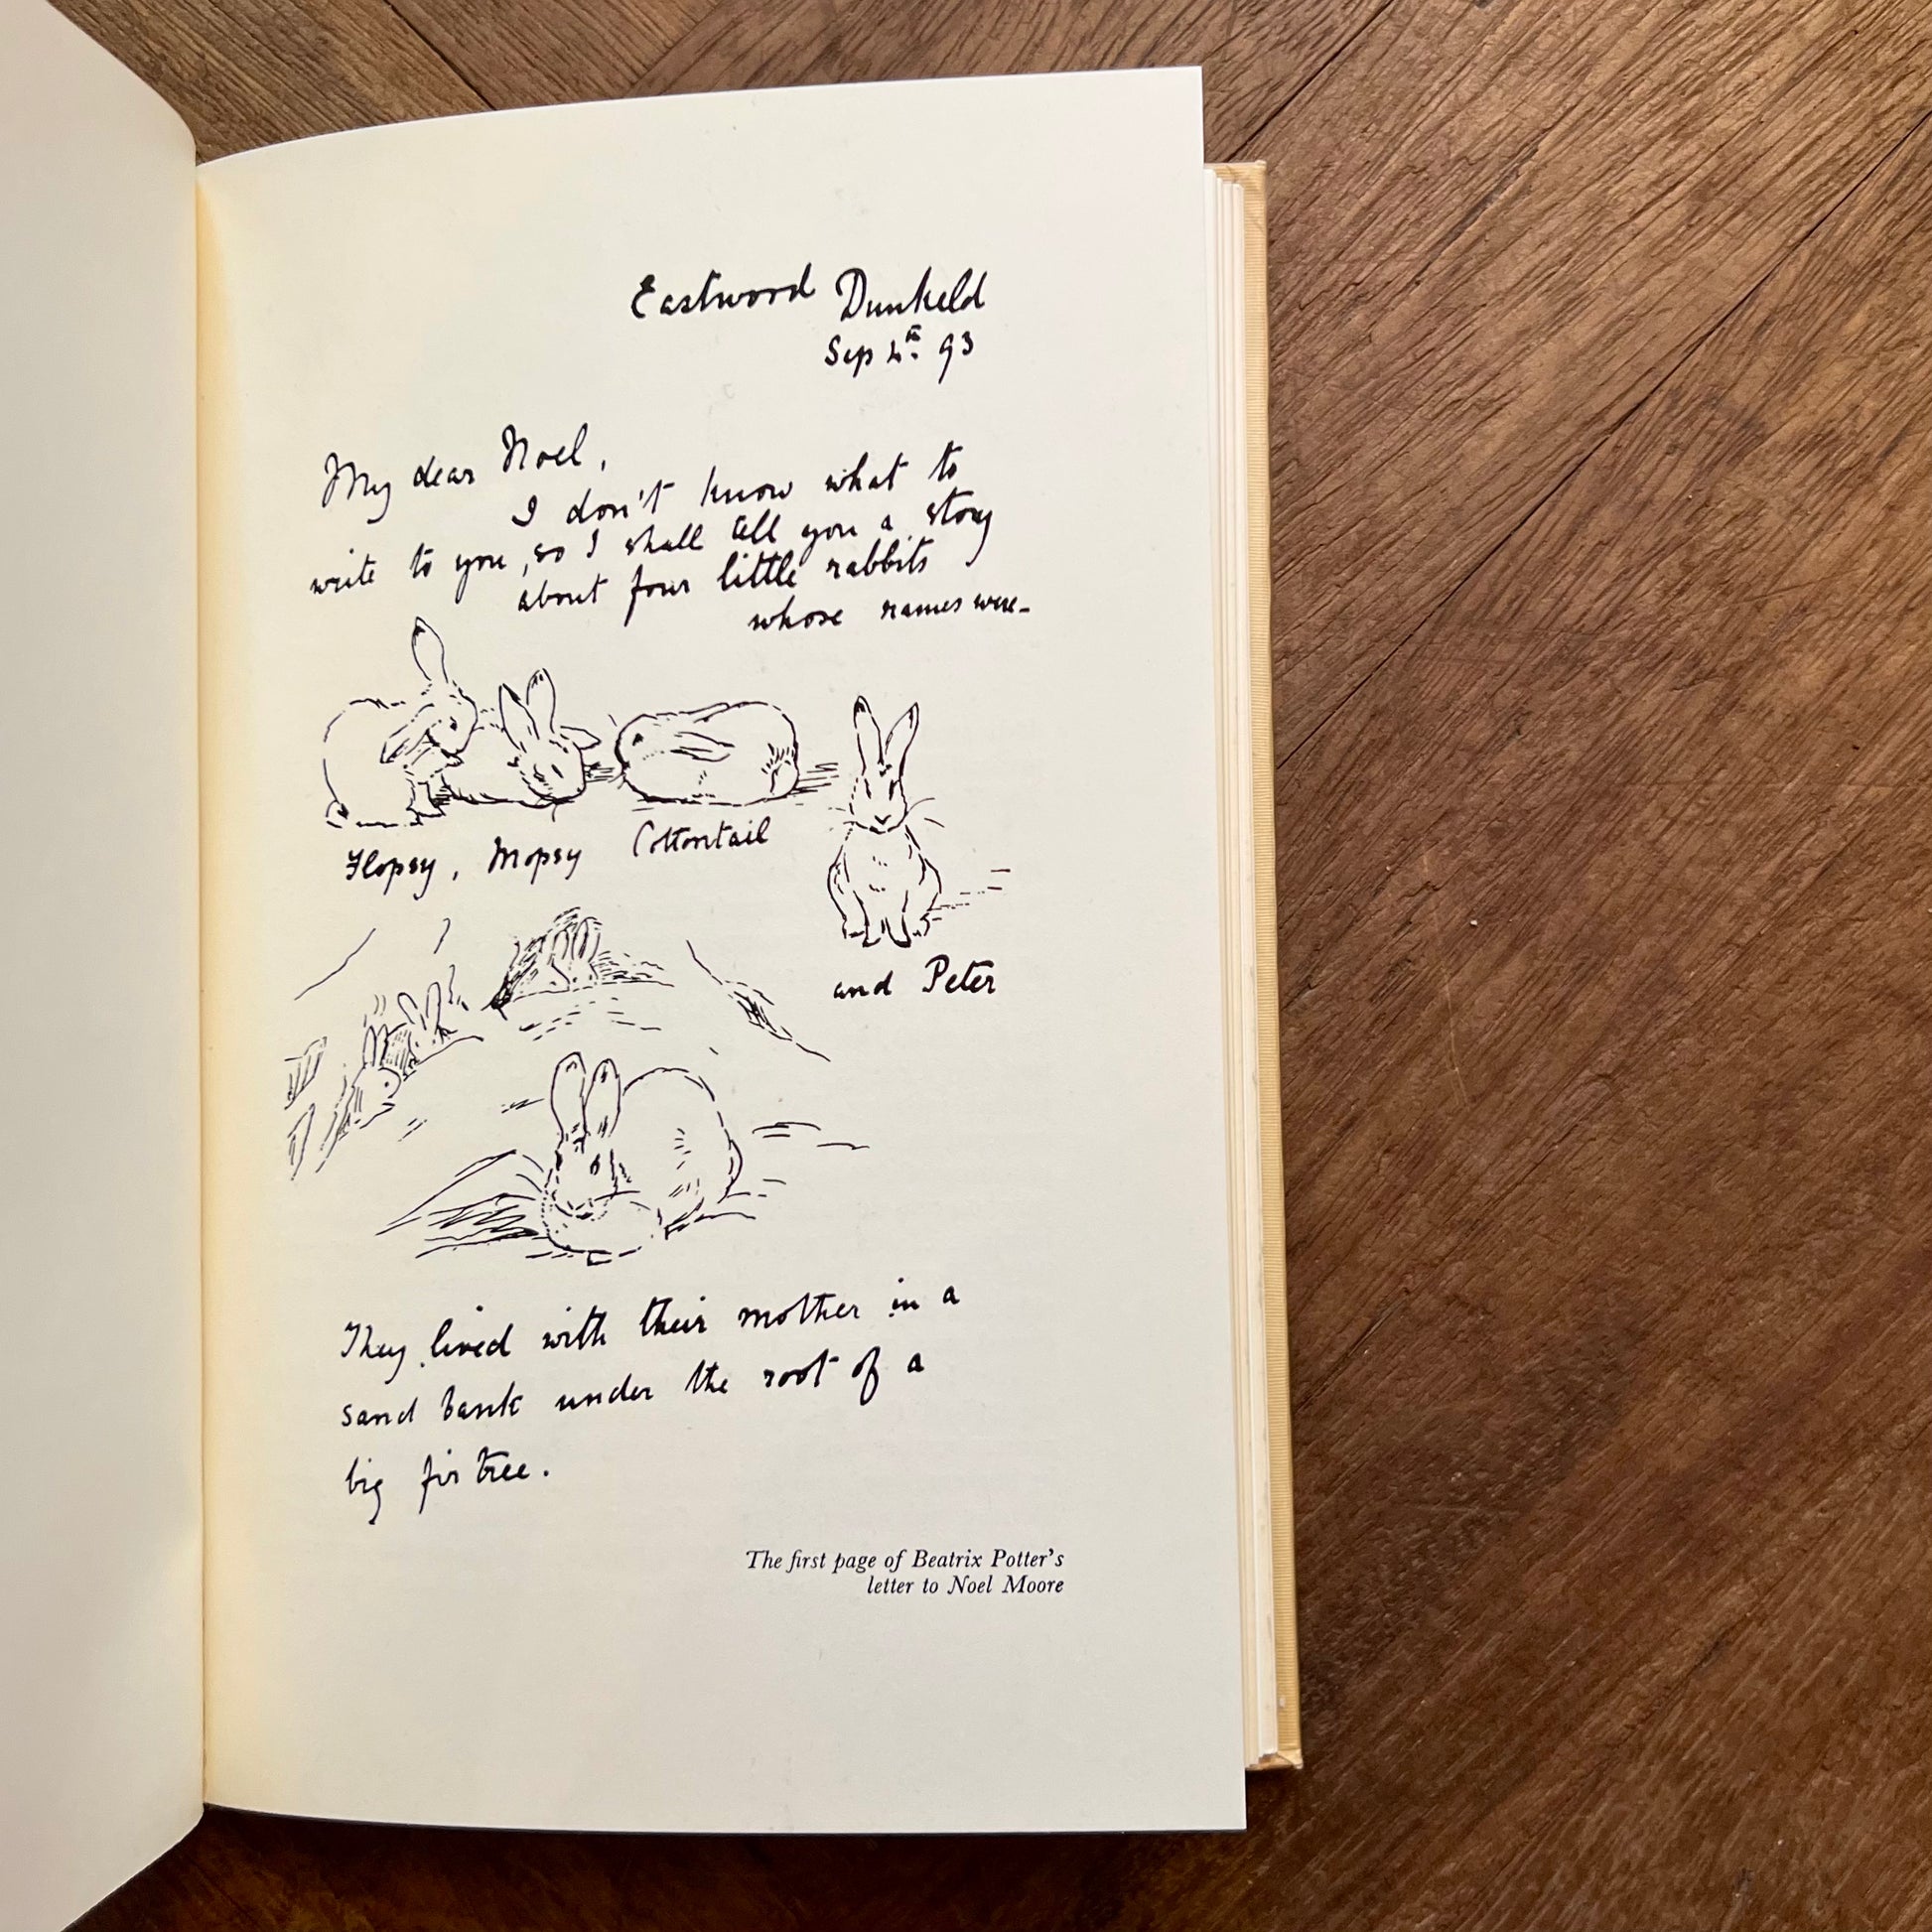 Eastwood Dunkeld
Sep 4th 93
My dear Noel,
I don't know what to
write to you, so I shall tell you a story
about four little rabbits
whose names were-
Flopsy, Mopsy Cottontail
and Peter
They lived with their mother in a
sand bank under the root of a
big fir tree.
The first page of Beatrix Potter's
letter to Noel Moore